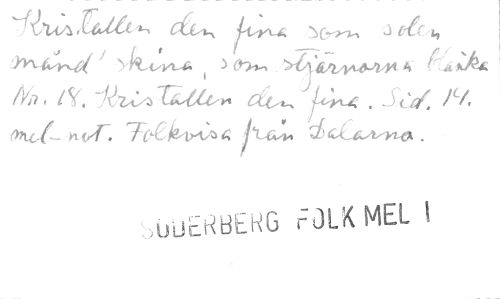 Kristallen den fina som solen
månd' skina, som stjärnorna blänka
Nr. 18. Kristallen den fina. Sid. 14.
mel-not. Folkvisa från Dalarna.
SÖDERBERG FOLK MEL I